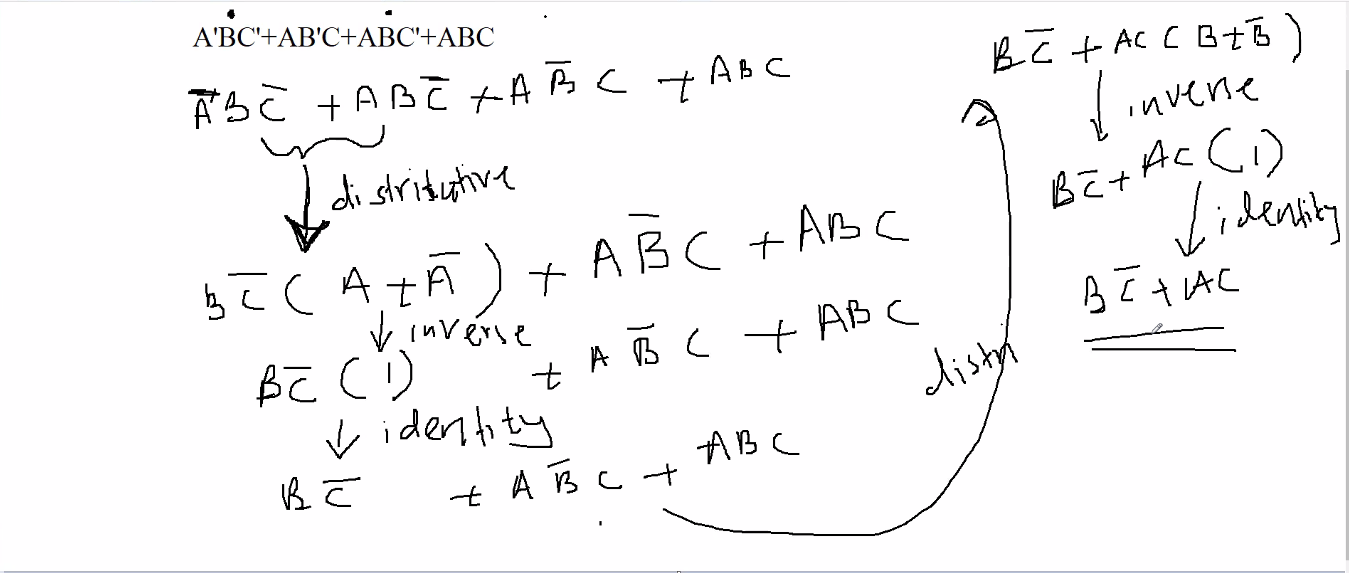 A'BC'+AB'C+ABC'+ABC
A̅BC̅ + ABC̅ + AB̅C + ABC
distributive
BC̅(A+A̅) + AB̅C + ABC
inverse
BC̅(1) + AB̅C + ABC
identity
BC̅ + AB̅C + ABC
distri
BC̅ + AC(B+B̅)
inverse
BC̅ + AC(1)
identity
BC̅ + AC